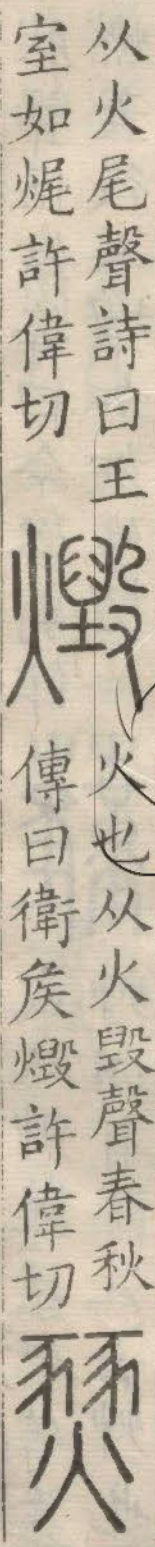 从火尾聲詩曰王
室如𤈦許偉切
燬
火也从火毀聲春秋
傳曰衛矦燬許偉切
燹